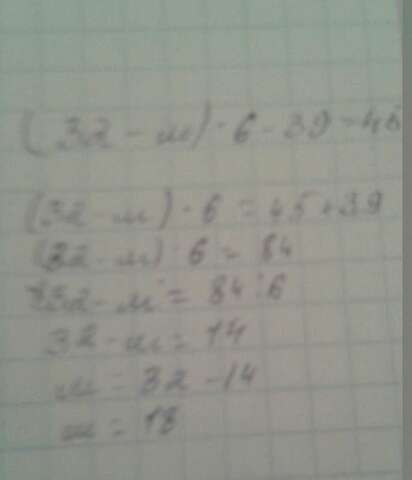 (32 - м) · 6 - 39 = 45
(32 - м) · 6 = 45 + 39
(32 - м) · 6 = 84
32 - м = 84 : 6
32 - м = 14
м = 32 - 14
м = 18